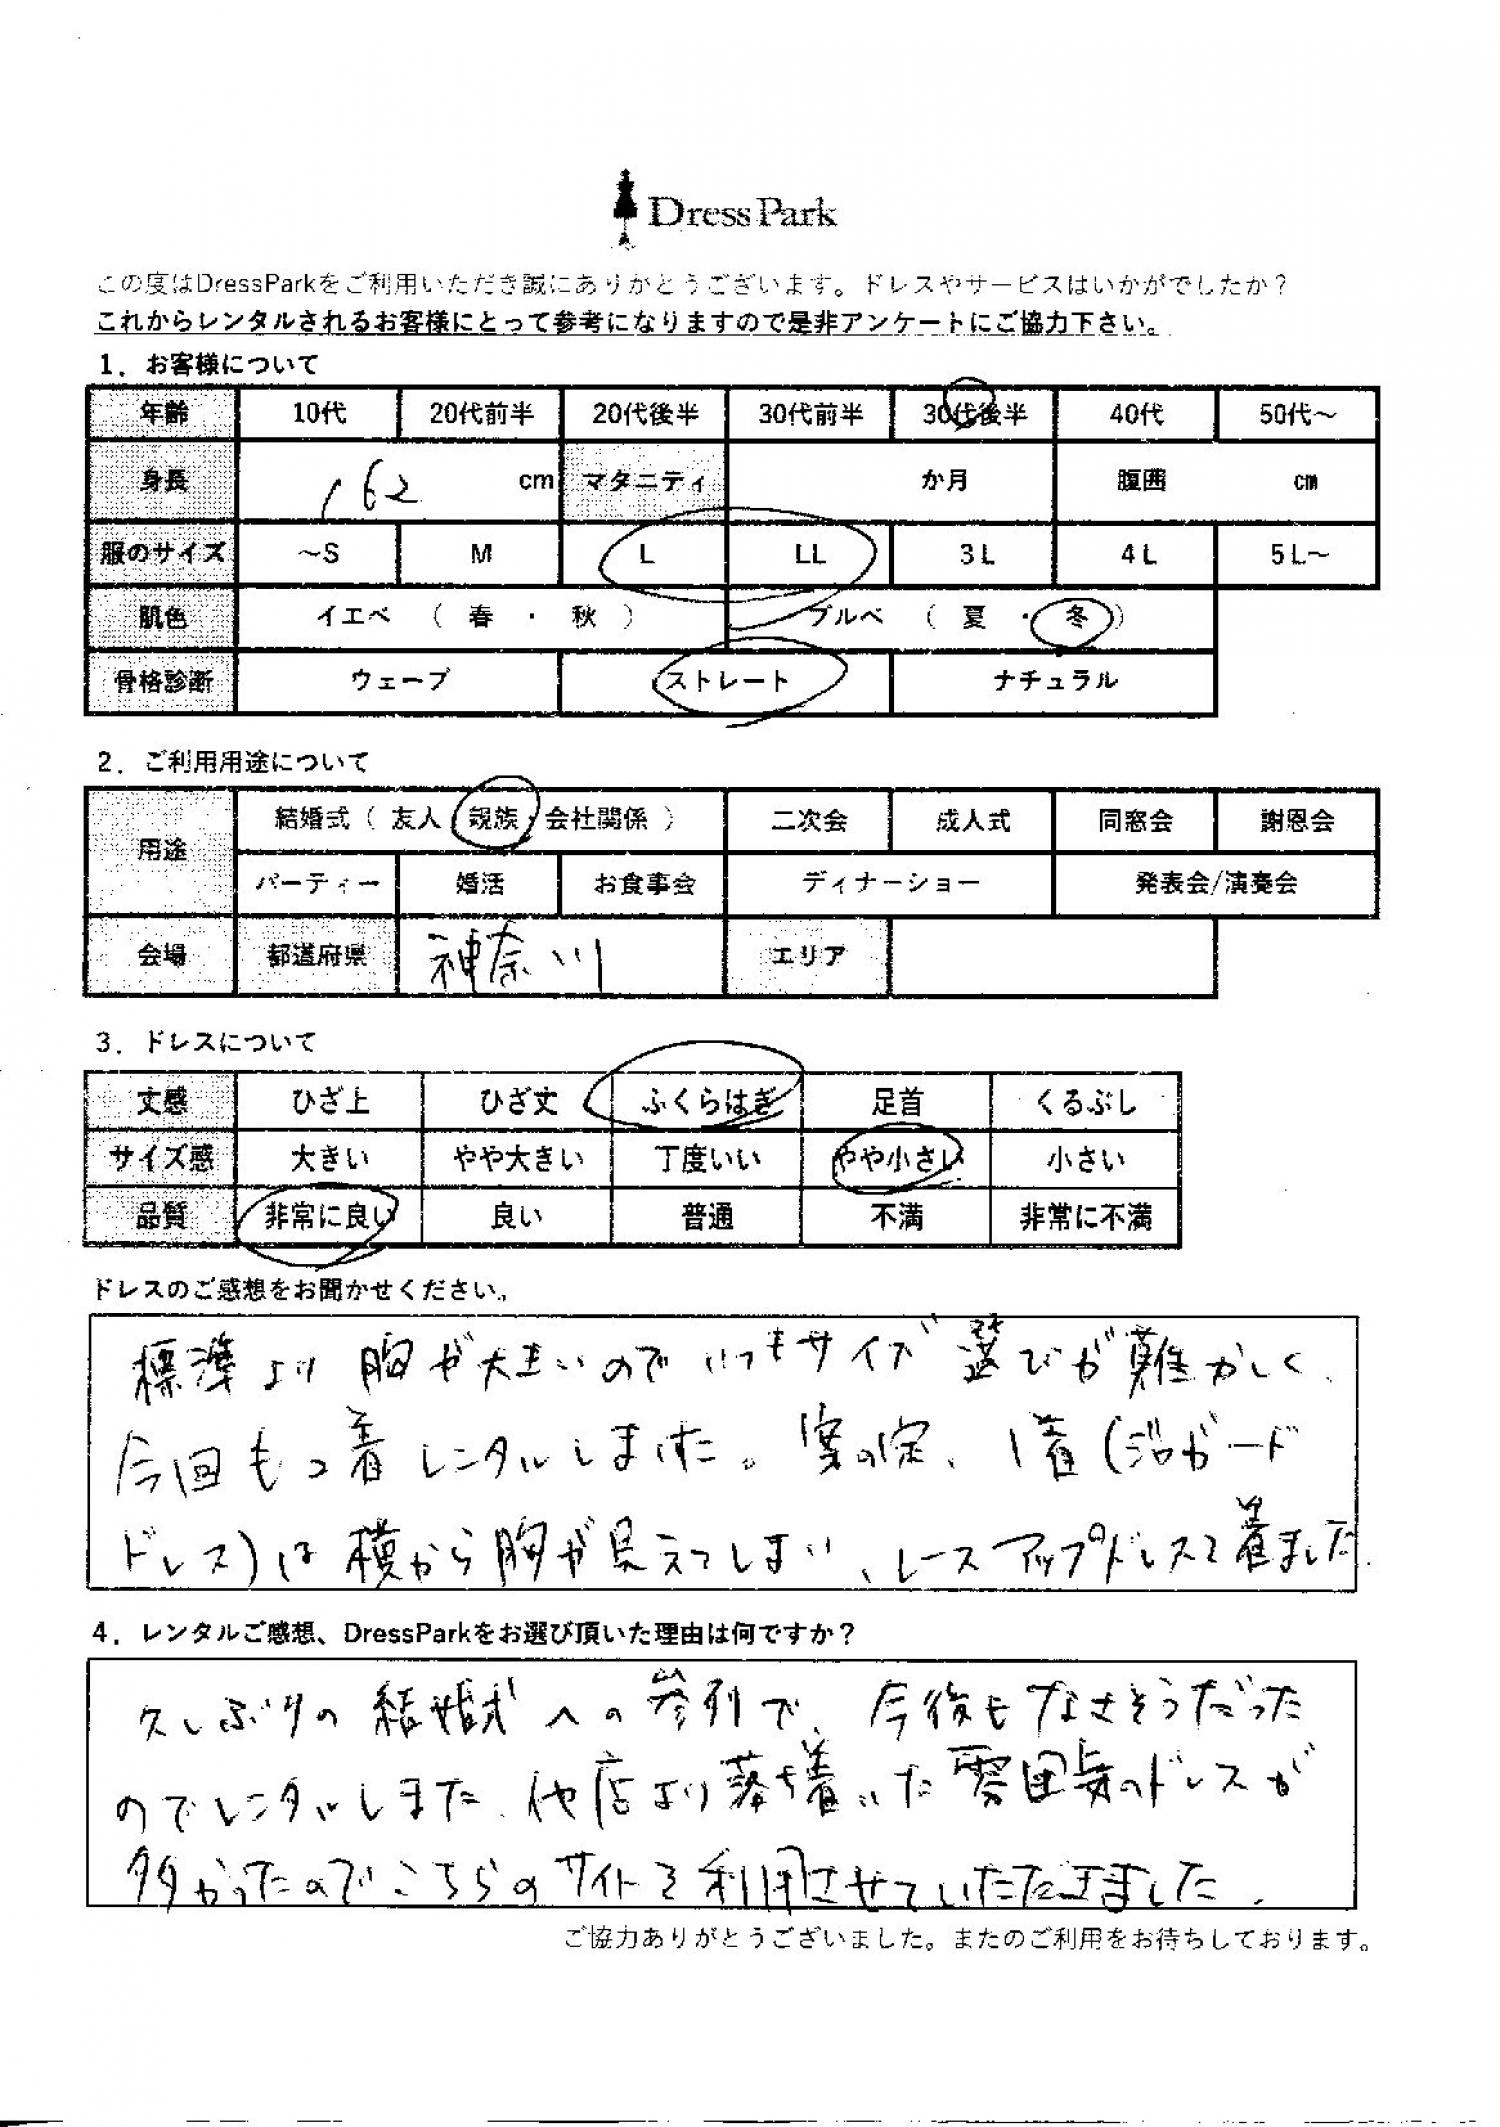 Dress Park
この度はDressParkをご利用いただき誠にありがとうございます。ドレスやサービスはいかがでしたか?
これからレンタルされるお客様にとって参考になりますので是非アンケートにご協力下さい。
1. お客様について
年齢 10代 20代前半 20代後半 30代前半 30代後半 40代 50代～
身長 162 cm マタニティ か月 腹囲 cm
服のサイズ ～S M L LL 3L 4L 5L～
肌色 イエベ ( 春 ・ 秋 ) ブルベ ( 夏 ・ 冬 )
骨格診断 ウェーブ ストレート ナチュラル
2. ご利用用途について
用途 結婚式 ( 友人 ・ 親族 ・ 会社関係 ) 二次会 成人式 同窓会 謝恩会
パーティー 婚活 お食事会 ディナーショー 発表会/演奏会
会場 都道府県 神奈川 エリア
3. ドレスについて
丈感 ひざ上 ひざ丈 ふくらはぎ 足首 くるぶし
サイズ感 大きい やや大きい 丁度いい やや小さい 小さい
品質 非常に良い 良い 普通 不満 非常に不満
ドレスのご感想をお聞かせください。
標準より胸が大きいのでいつもサイズ選びが難かしく、
今回も2着レンタルしました。案の定、1着(ジャガード
ドレス)は横から胸が見えてしまい、レースアップドレスで着ました。
4. レンタルご感想、DressParkをお選び頂いた理由は何ですか?
久しぶりの結婚式への参列で、今後もなさそうだった
のでレンタルしました。他店より落ち着いた雰囲気のドレスが
多かったのでこちらのサイトを利用させていただきました。
ご協力ありがとうございました。またのご利用をお待ちしております。